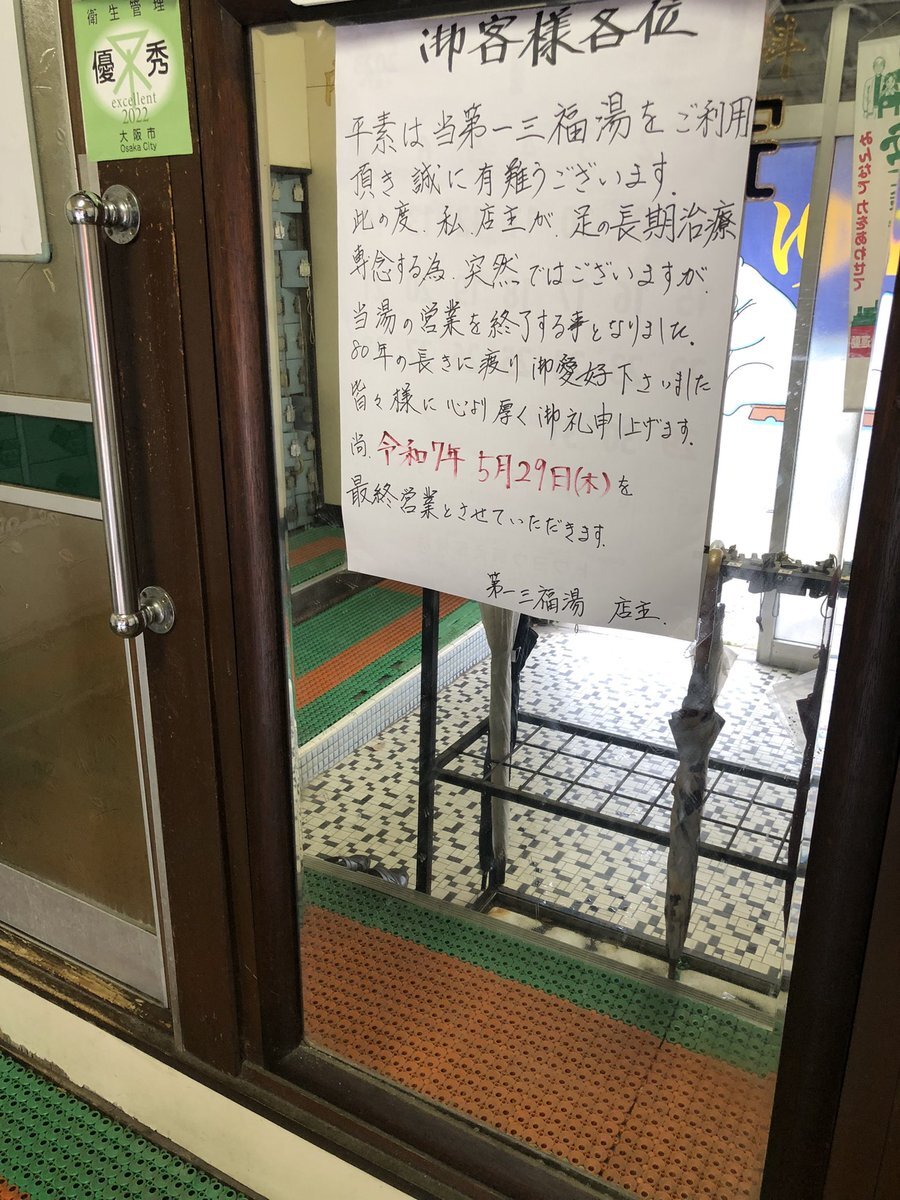 衛生管理
優秀
excellent
2022
大阪市
Osaka City
御客様各位
平素は当第一三福湯をご利用
頂き誠に有難うございます.
此の度、私、店主が、足の長期治療
専念する為、突然ではございますが、
当湯の営業を終了する事となりました.
80年の長きに疲り御愛好下さいました
皆々様に心より厚く御礼申し上げます.
尚、令和7年 5月29日(木)を
最終営業とさせていただきます.
第一三福湯 店主.
みんなで力をあわせて
ゆ